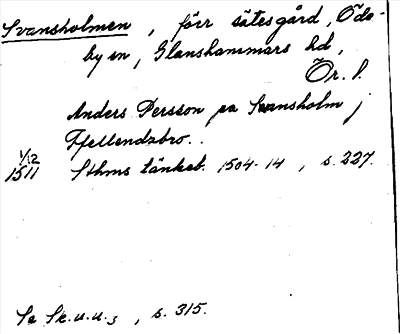 Svansholmen, förr sätesgård, Ödo-
by sn, Glanshammars hd,
Ör. l.
Anders Persson pa Svansholm j
Ffellendzbro..
1/12 1511 Sthms tänkeb. 1504-14, s. 227.
Se Sk.u.u.3, s. 315.